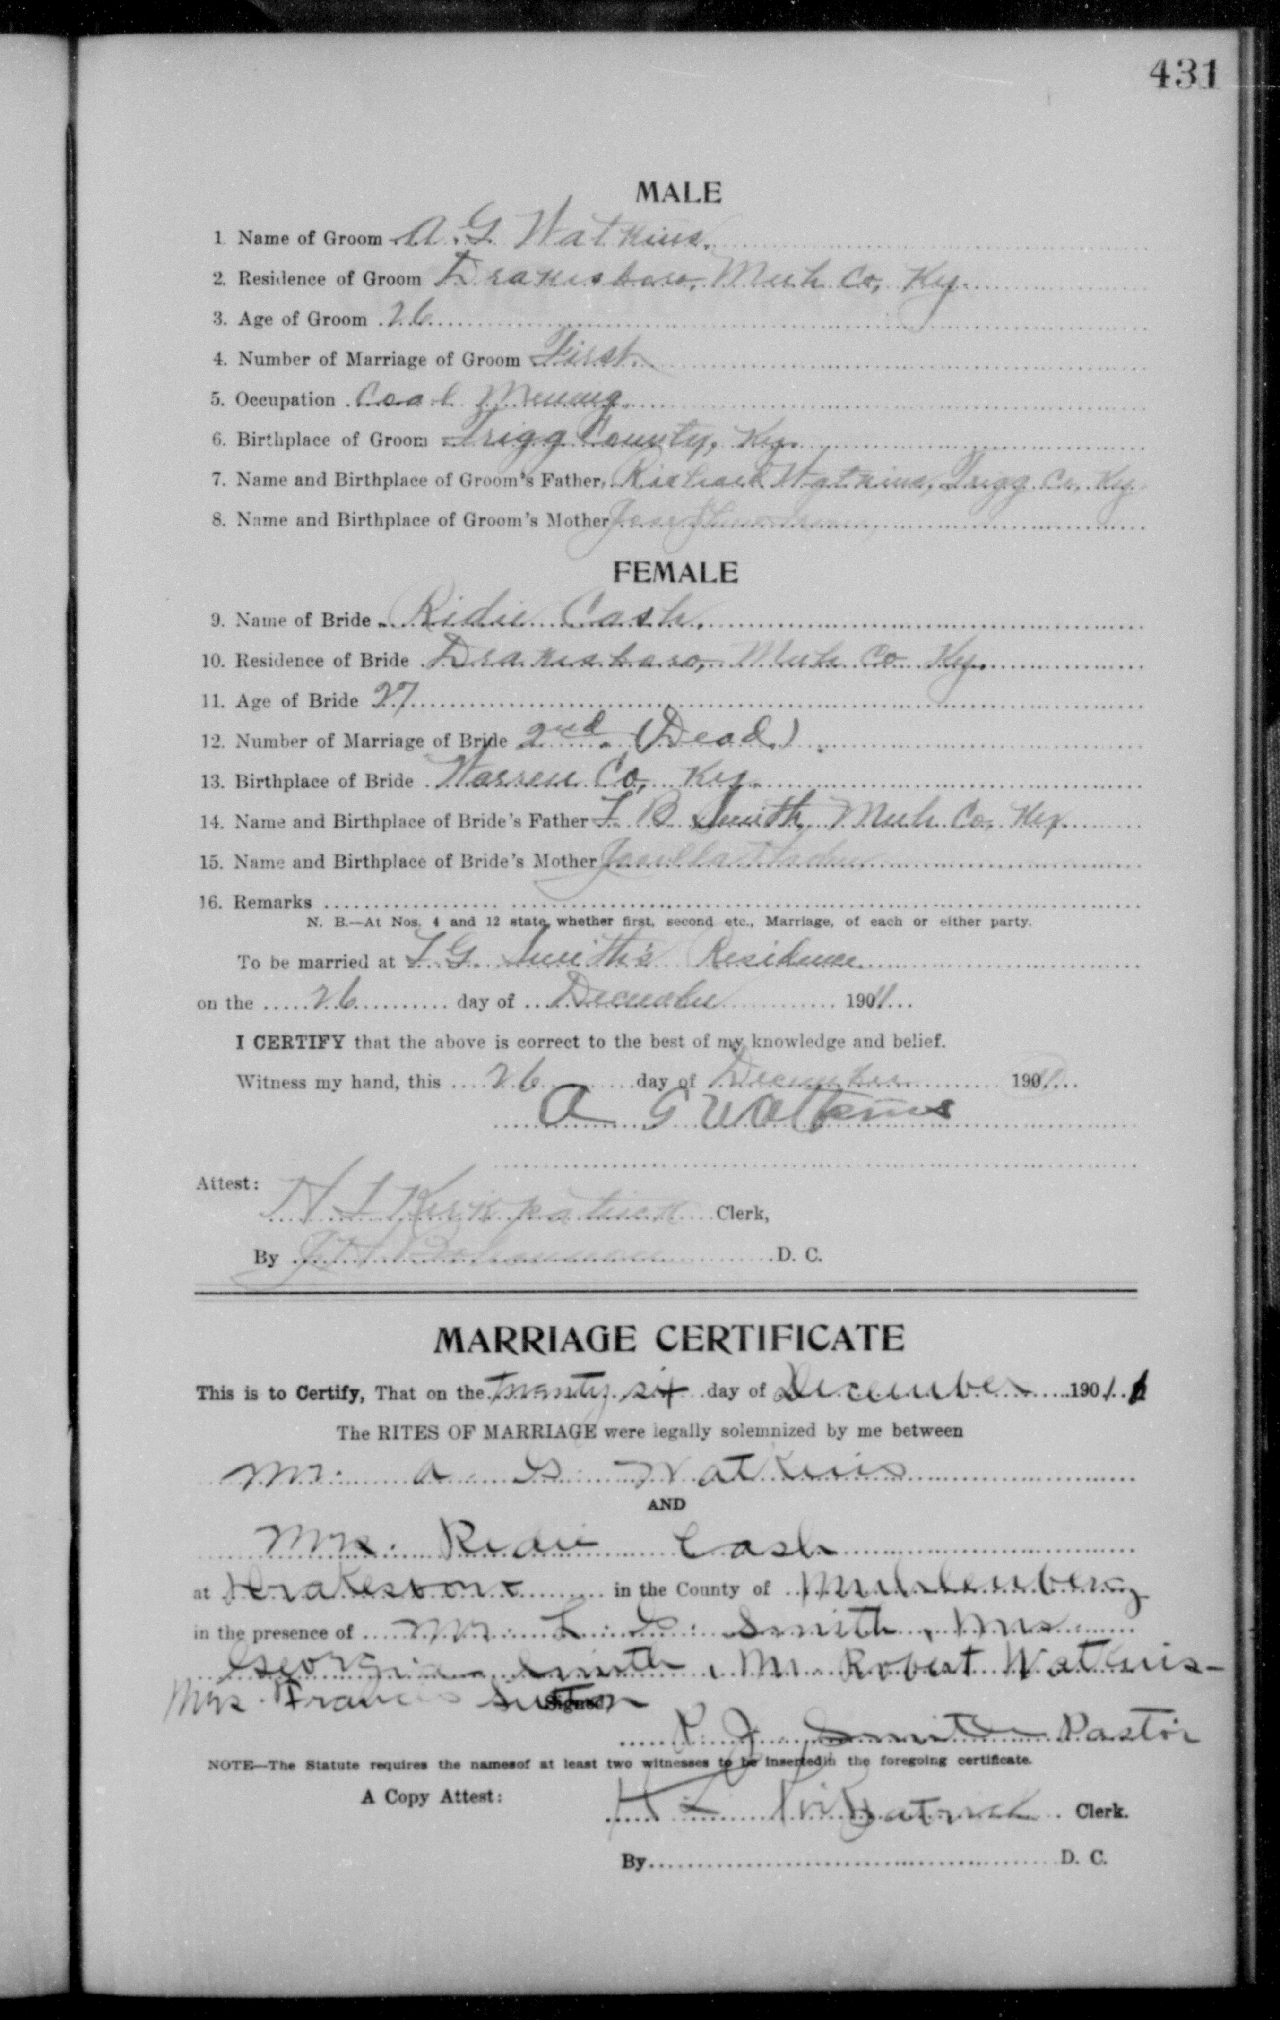 431
MALE
1 Name of Groom A. G. Watkins.
2. Residence of Groom Drakesboro, Muh Co, Ky.
3. Age of Groom 26
4. Number of Marriage of Groom First.
5. Occupation Coal Mining.
6. Birthplace of Groom Trigg County, Ky.
7. Name and Birthplace of Groom's Father, Richard Watkins, Trigg Co. Ky.
8. Name and Birthplace of Groom's Mother
FEMALE
9. Name of Bride Ridie Cash.
10. Residence of Bride Drakesboro, Muh Co Ky.
11. Age of Bride 27
12. Number of Marriage of Bride 2nd. (Dead.)
13. Birthplace of Bride Warren Co, Ky.
14. Name and Birthplace of Bride's Father B Smith, Muh Co. Ky
15. Name and Birthplace of Bride's Mother
16. Remarks
N. B.—At Nos. 4 and 12 state, whether first, second etc., Marriage, of each or either party.
To be married at L. G. Smith's Residence
on the 26 day of December 1911
I CERTIFY that the above is correct to the best of my knowledge and belief.
Witness my hand, this 26 day of December 1911
A G Watkins
Attest: H L Kirkpatrick Clerk,
By D. C.
MARRIAGE CERTIFICATE
This is to Certify, That on the twenty six day of December 1901.1
The RITES OF MARRIAGE were legally solemnized by me between
Mr. A G Watkins
AND
Mrs. Ridie Cash
at Drakesboro in the County of Muhlenberg
in the presence of Mr. L. G. Smith, Mrs.
Georgia Smith, Mr. Robert Watkins-
Mrs. Frances Suton
Signed
R. J. Smith Pastor
NOTE—The Statute requires the namesof at least two witnesses to be insertedin the foregoing certificate.
A Copy Attest: H L Kirkpatrick Clerk.
By D. C.